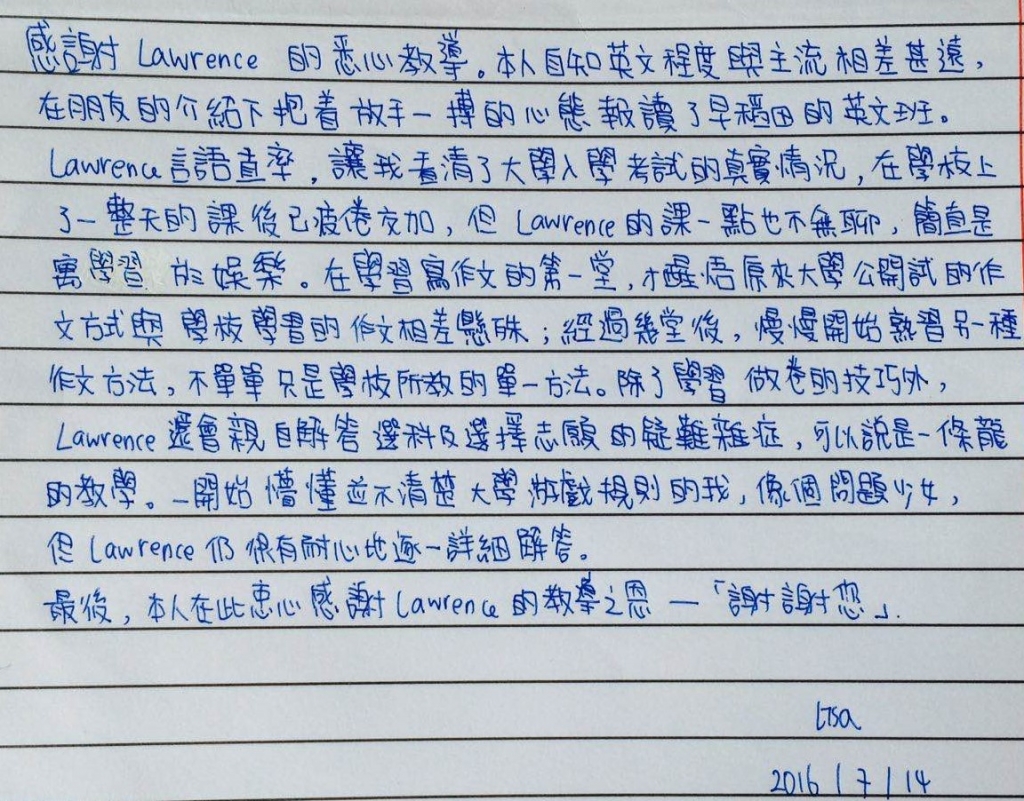 感謝 Lawrence 的悉心教導。本人自知英文程度與主流相差甚遠，
在朋友的介紹下抱着放手一搏的心態報讀了早稻田的英文班。
Lawrence言語直率，讓我看清了大學入學考試的真實情況，在學校上
了一整天的課後已疲倦交加，但 Lawrence的課一點也不無聊，簡直是
寓學習於娛樂。在學習寫作文的第一堂，才醒悟原來大學公開試的作
文方式與學校學習的作文相差懸殊；經過幾堂後，慢慢開始熟習另一種
作文方法，不單單只是學校所教的單一方法。除了學習做卷的技巧外，
Lawrence 還會親自解答選科及選擇志願的疑難雜症，可以說是一條龍
的教學。一開始懵懂並不清楚大學遊戲規則的我，像個問題少女，
但 Lawrence 仍很有耐心地逐一詳細解答。
最後，本人在此衷心感謝Lawrence的教導之恩 — 「謝謝您」.
Lisa
2016 / 7 / 14